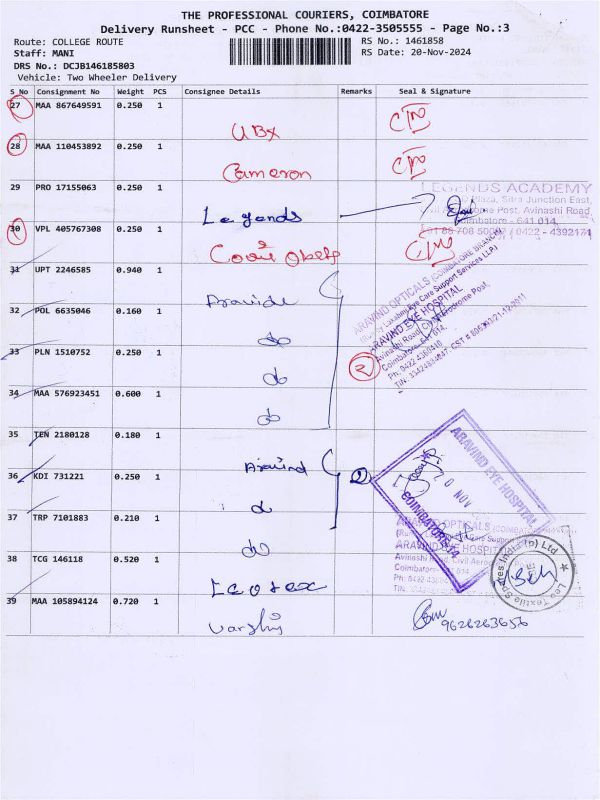 THE PROFESSIONAL COURIERS, COIMBATORE
Delivery Runsheet - PCC - Phone No.:0422-3505555 - Page No.:3
Route: COLLEGE ROUTE RS No.: 1461858
Staff: MANI RS Date: 20-Nov-2024
DRS No.: DCJB146185803
Vehicle: Two Wheeler Delivery
S No Consignment No Weight PCS Consignee Details Remarks Seal & Signature
27 MAA 867649591 0.250 1
UBX
28 MAA 110453892 0.250 1
Cameron
29 PRO 17155063 0.250 1
LEGENDS ACADEMY
Plaza, Sitra Junction East,
Post, Avinashi Road
Legends
Coimbatore - 641 014.
30 VPL 405767308 0.250 1
/ 0422 - 4392174
31 UPT 2246585 0.940 1
ARAVIND OPTICALS (COIMBATORE BRANCH)
Eye Care Support Services LLP)
ARAVIND EYE HOSPITAL
Avinashi Road
Coimbatore - 641 014.
Ph: 0422 4360410
32 POL 6635046 0.160 1
do
33 PLN 1510752 0.250 1
2
do
34 MAA 576923451 0.600 1
do
35 TEN 2180128 0.180 1
Aravind
ARAVIND EYE HOSPITAL
20 NOV
COIMBATORE-14
36 KDI 731221 0.250 1
2
do
37 TRP 7101883 0.210 1
ARAVIND OPTICALS
ARAVIND EYE HOSPITAL
do
38 TCG 146118 0.520 1
Coimbatore
39 MAA 105894124 0.720 1
Varshi
9626263656